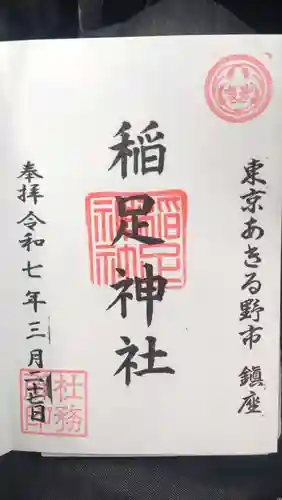 東京あきる野市 鎮座
稲足神社
奉拝 令和七年三月二十七日
社務